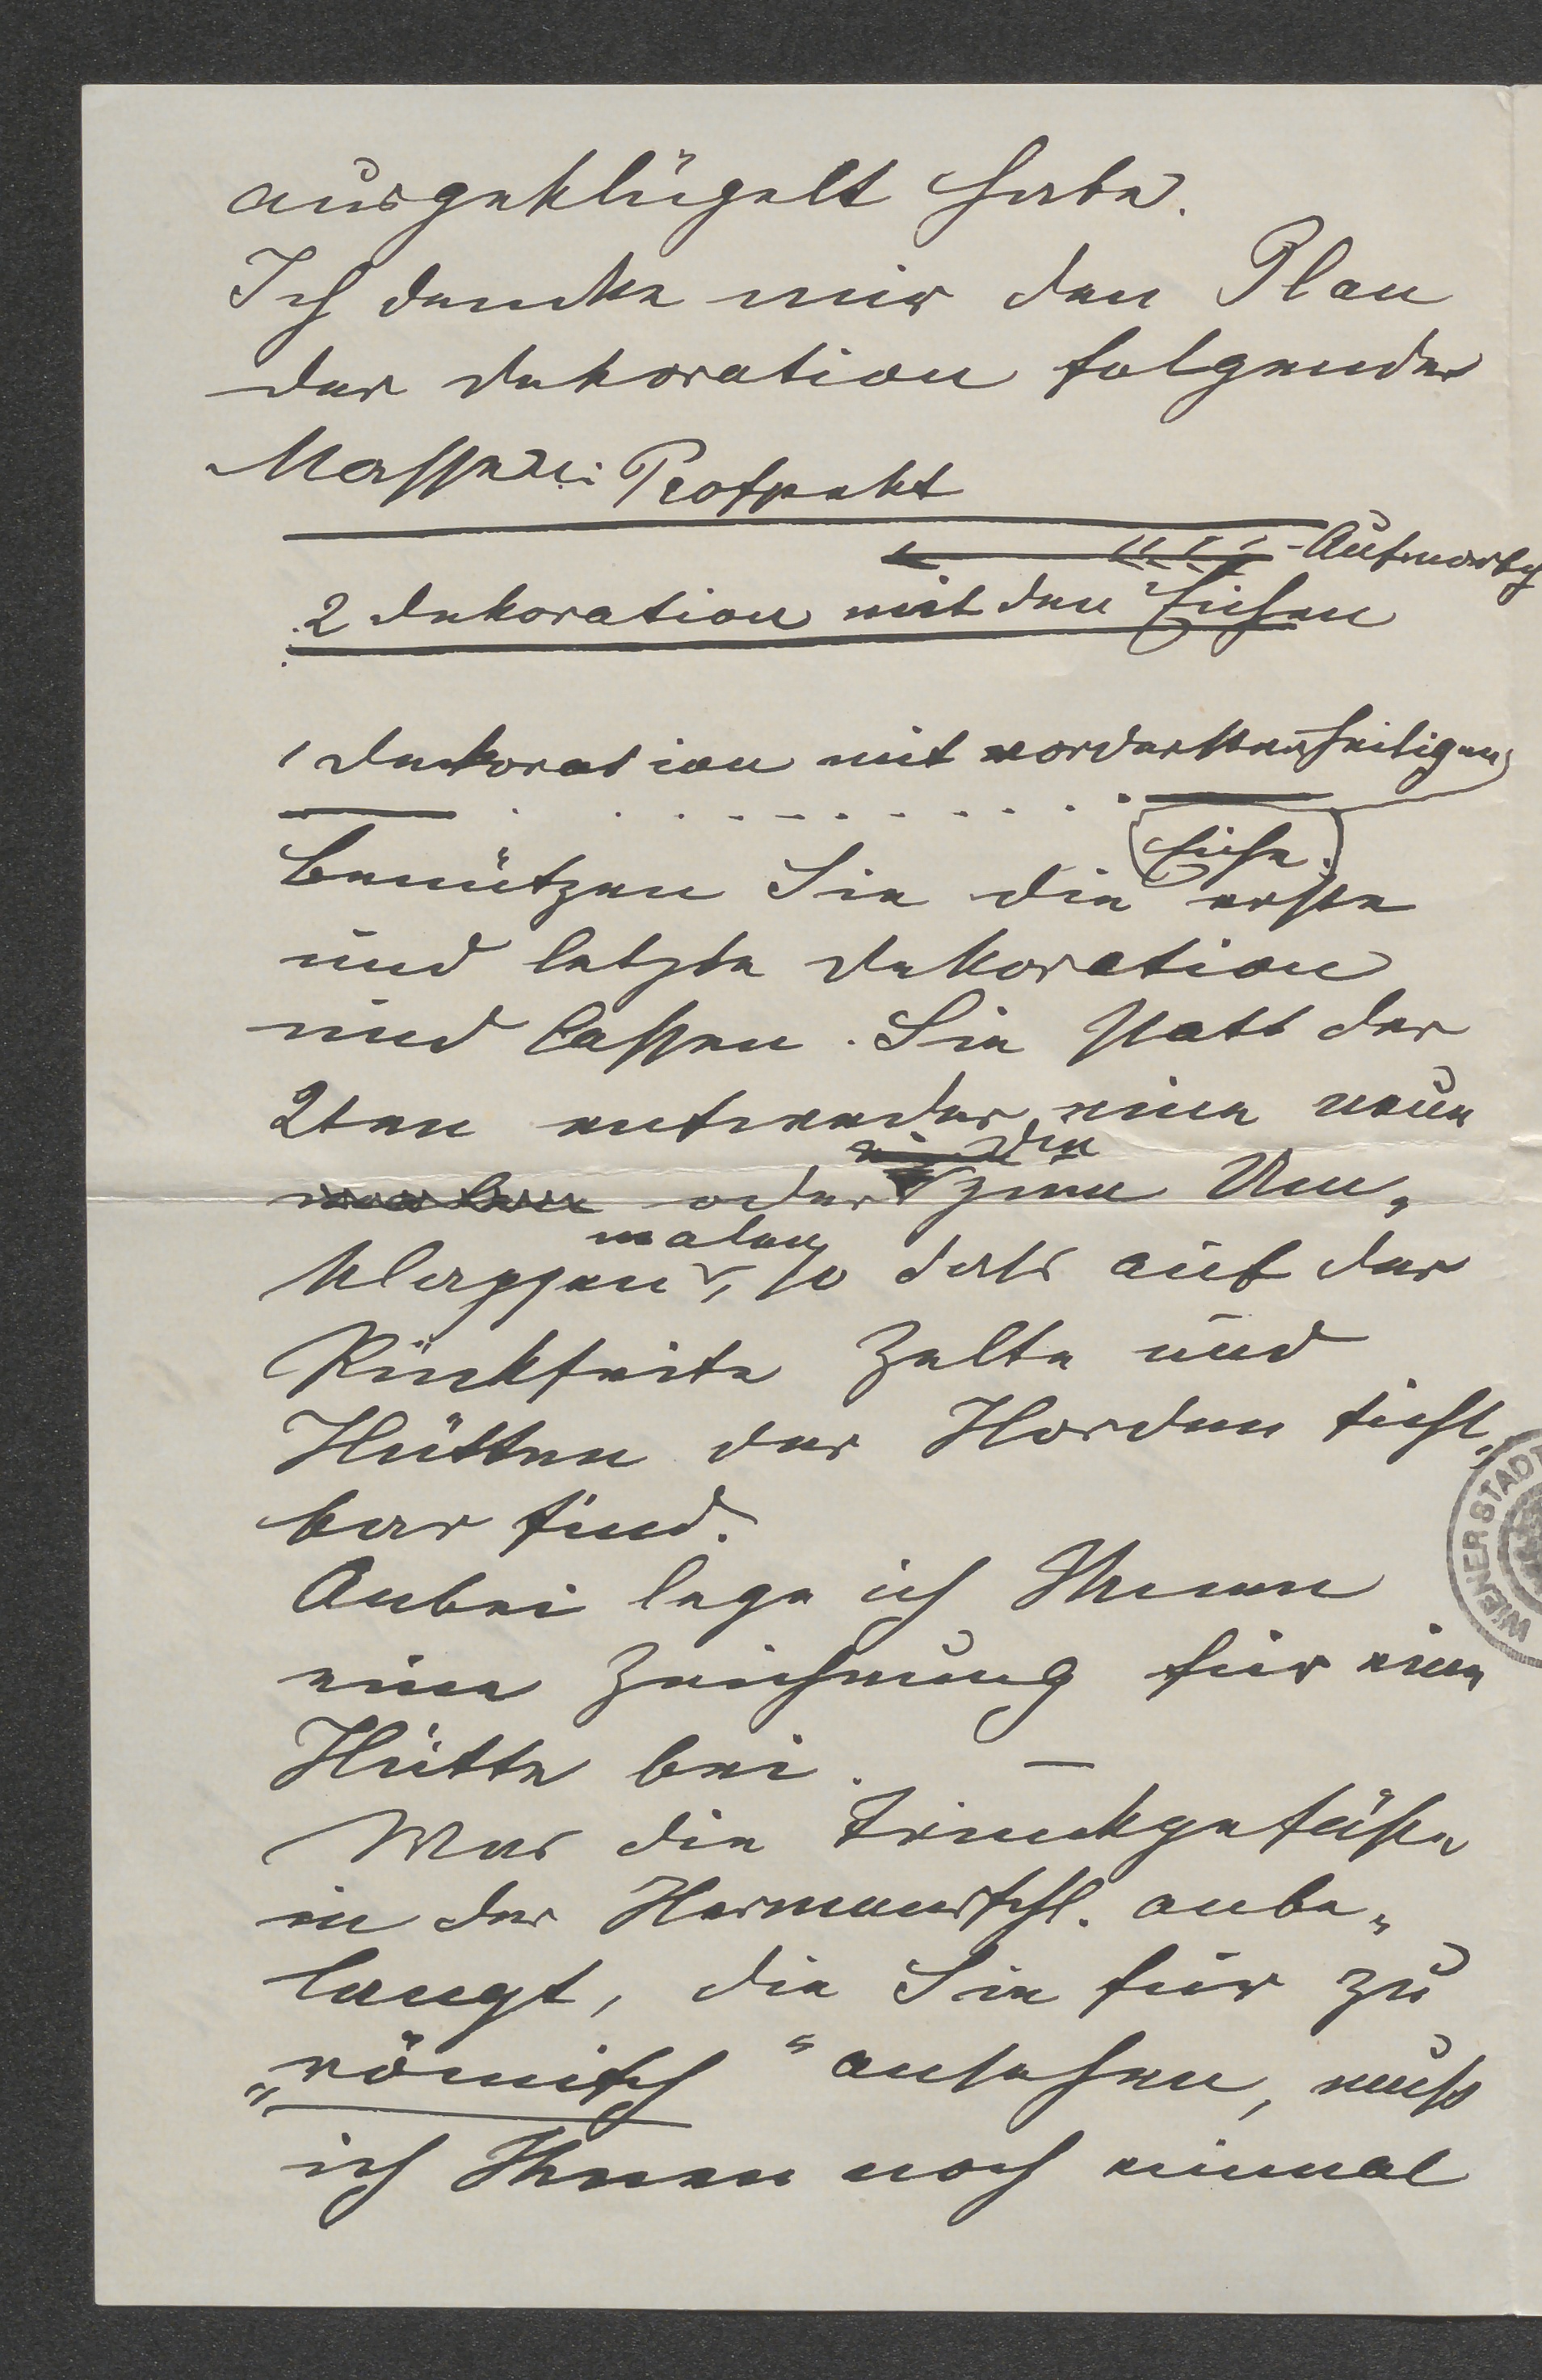 ausgeklügelt habe.
Ich dencke mir den Plan
der Dekoration folgender
Massen: Prospekt
Aufmarsch
2 Dekoration mit den Eichen
1 Deckoration mit vorder
Eiche.
Benützen Sie die erste
und letzte Dekoration
und lassen Sie statt der
2ten entweder eine neue
oder die zum Um„
malen
klappen, so dass auf der
Rückseite Zelte und
Hütten der Horden sicht„
bar sind.
Anbei lege ich Ihnen
eine Zeichnung für eine
Hütte bei. —
Was die Trinckgefässe
in der Hermannschl. anbe„
langt, die Sie für zu
„römisch“ ansehen, muss
ich Ihnen noch einmal
WIENER STADT